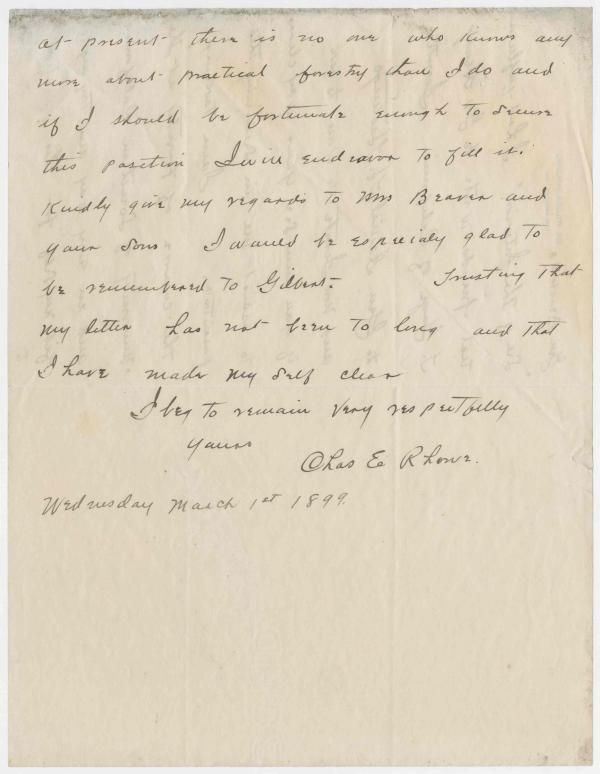 at present there is no one who knows any
more about practical forestry than I do and
if I should be fortunate enough to secure
this position I will endeavor to fill it.
Kindly give my regards to Mrs Beaver and
your sons I would be especialy glad to
be remembered to Gilbert. Trusting that
my letter has not been to long and that
I have made my self clear
I beg to remain very respectfully
yours
Chas E Rhone.
Wednesday March 1st 1899.